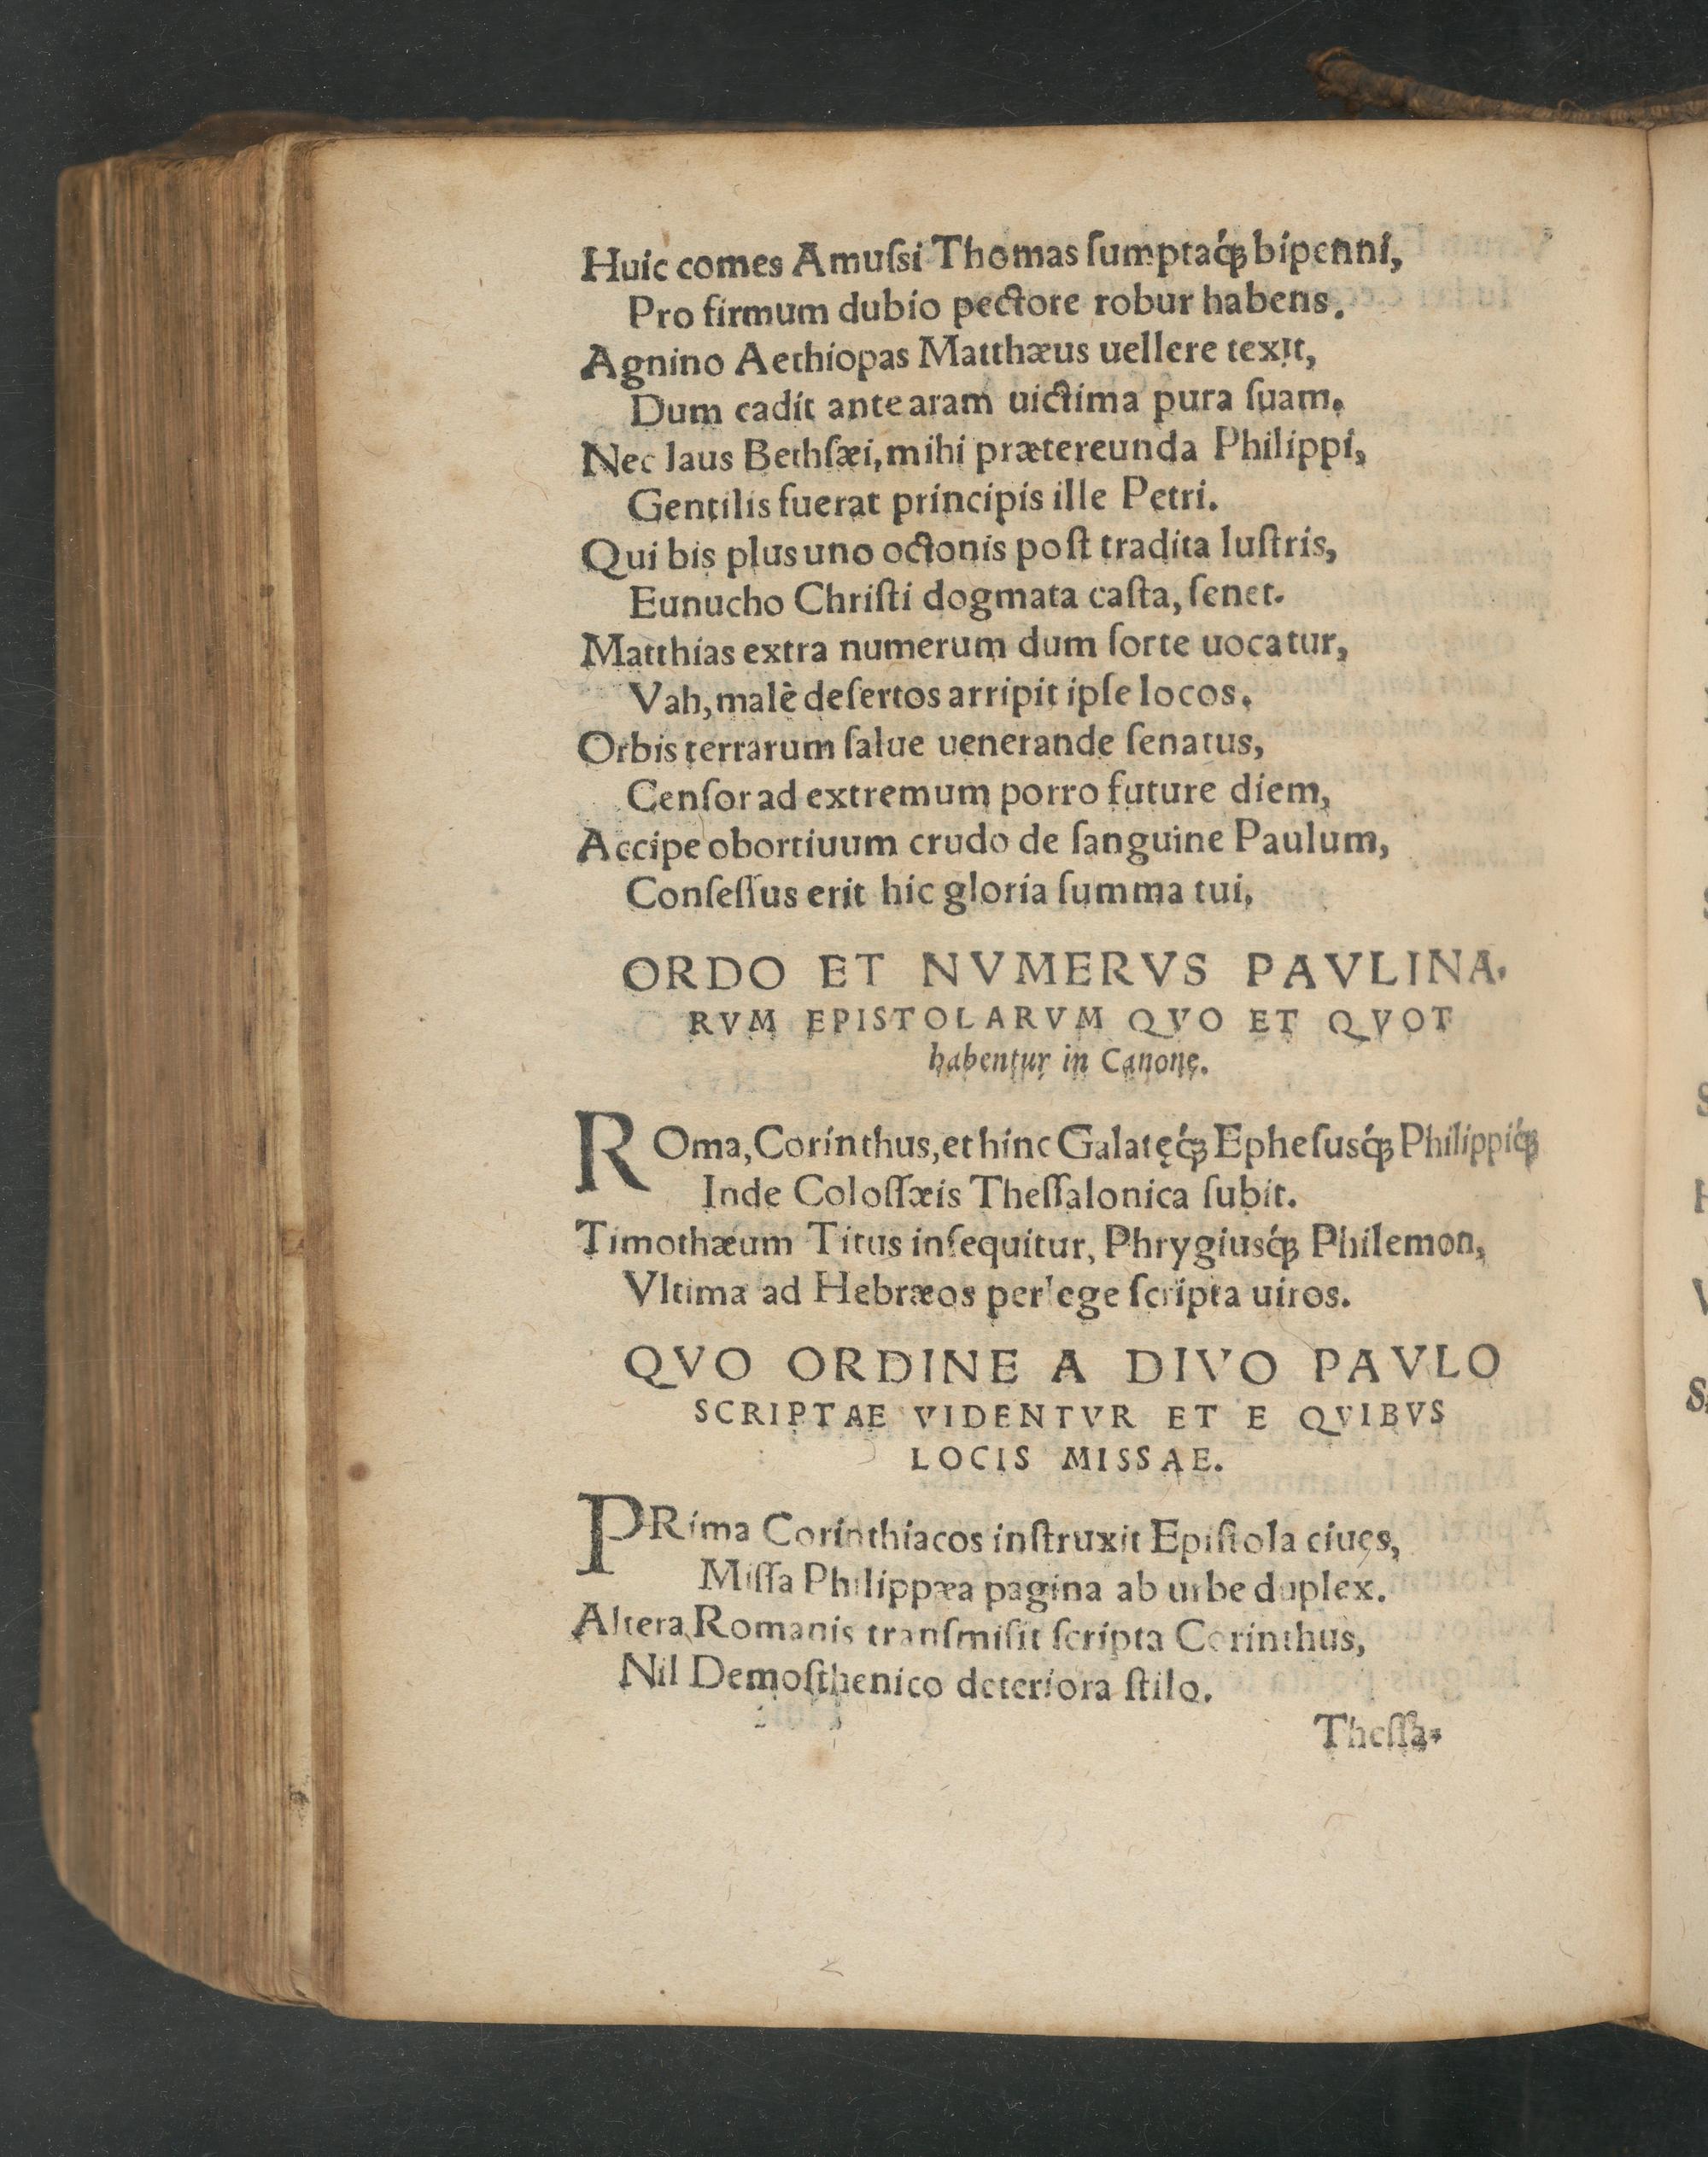 Huic comes Amuſsi Thomas ſumptaq́ꝫ bipenni,
Pro firmum dubio pectore robur habens.
Agnino Aethiopas Matthæus uellere texit,
Dum cadit ante aram uictima pura ſuam.
Nec laus Bethſæi, mihi prætereunda Philippi,
Gentilis fuerat principis ille Petri.
Qui bis plus uno octonis poſt tradita luſtris,
Eunucho Chriſti dogmata caſta, ſenet.
Matthias extra numerum dum ſorte uocatur,
Vah, malè deſertos arripit ipſe locos.
Orbis terrarum ſalue uenerande ſenatus,
Cenſor ad extremum porro future diem,
Accipe obortiuum crudo de ſanguine Paulum,
Conſeſſus erit hic gloria ſumma tui,
ORDO ET NVMERVS PAVLINA-
RVM EPISTOLARVM QVO ET QVOT
habentur in Canone.
ROma, Corinthus, et hinc Galatęq́ꝫ Epheſusq́ꝫ Philippiq́ꝫ
Inde Coloſſæis Theſſalonica ſubit.
Timothæum Titus inſequitur, Phrygiusq́ꝫ Philemon,
Vltima ad Hebræos perlege ſcripta uiros.
QVO ORDINE A DIVO PAVLO
SCRIPTAE VIDENTVR ET E QVIBVS
LOCIS MISSAE.
PRima Corinthiacos inſtruxit Epiſtola ciues,
Miſſa Philippæa pagina ab urbe duplex.
Altera Romanis tranſmiſit ſcripta Corinthus,
Nil Demoſthenico deteriora ſtilo.
Theſſa-